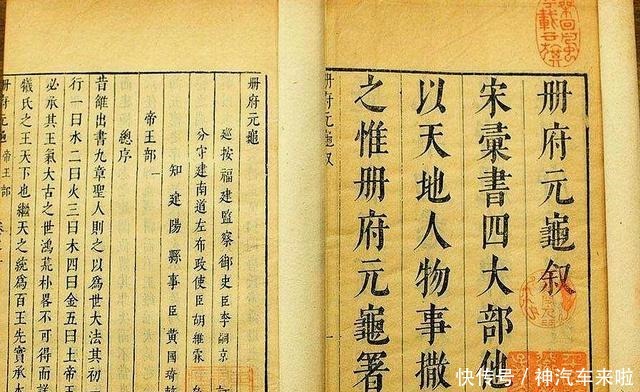 冊府元龜叙
宋彙書四大部他
以天地人物事撒
之惟冊府元龜署
冊府元龜叙
冊府元龜
巡按福建監察御史臣李嗣京
分守建南道左布政使臣胡維霖
知建陽縣事臣黃國琦
帝王部一
總序
昔雒出書九章聖人則之以爲世大法其初
行一曰水二曰火三曰木四曰金五曰土帝王
必承其王氣大古之世鴻荒朴畧不可得而詳
犧氏之王天下也繼天之統爲百王先實承木
冊府元龜 帝王部
快传号／神汽车来啦